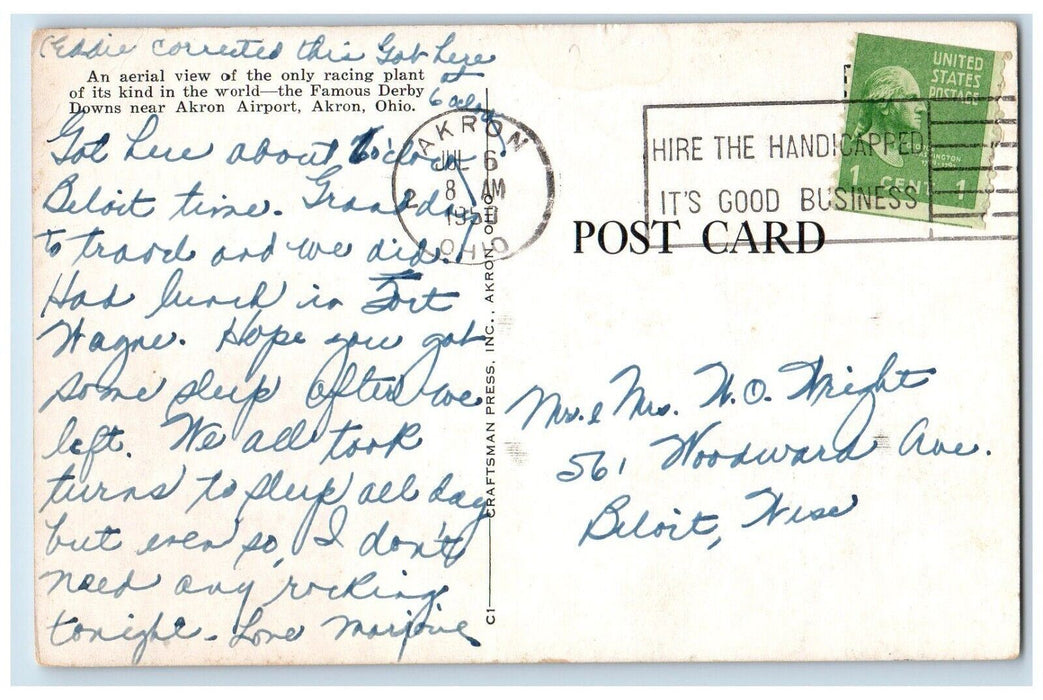 (Eddie corrected this Got here
at
6 oclock
An aerial view of the only racing plant
of its kind in the world—the Famous Derby
Downs near Akron Airport, Akron, Ohio.
Got here about 6 o'clock
Beloit time.
to travel and we did.
Had lunch in Fort
Wayne. Hope you got
some sleep after we
left. We all took
turns to sleep all day
but even so, I don't
need any rocking
tonight. Love Marjorie
C1— CRAFTSMAN PRESS, INC., AKRON, OHIO
AKRON
JUL 6
8 AM
1950
OHIO
2
HIRE THE HANDICAPPED
IT'S GOOD BUSINESS
UNITED
STATES
POSTAGE
1 CENT 1
POST CARD
Mr. & Mrs. W. O. Wright
561 Woodward Ave.
Beloit, Wisc